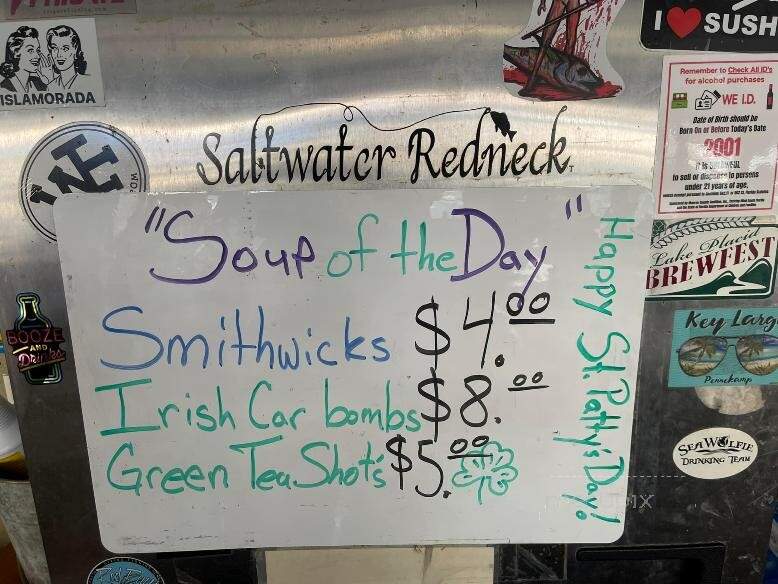 I ❤ SUSH
ISLAMORADA
Remember to Check All ID's
for alcohol purchases
WE I.D.
Date of Birth should be
Born On or Before Today's Date
2001
to sell or dispense to persons
under 21 years of age.
Saltwater Redneck
"Soup of the Day"
Smithwicks $4.00
Irish Car bombs $8.00
Green Tea Shot's $5.00
Happy St. Patty's Day!
Lake Placid
BREWFEST
BOOZE
AND
Drinks
Key Larg
Pennekamp
SEA WOLFIE
DRINKING TEAM